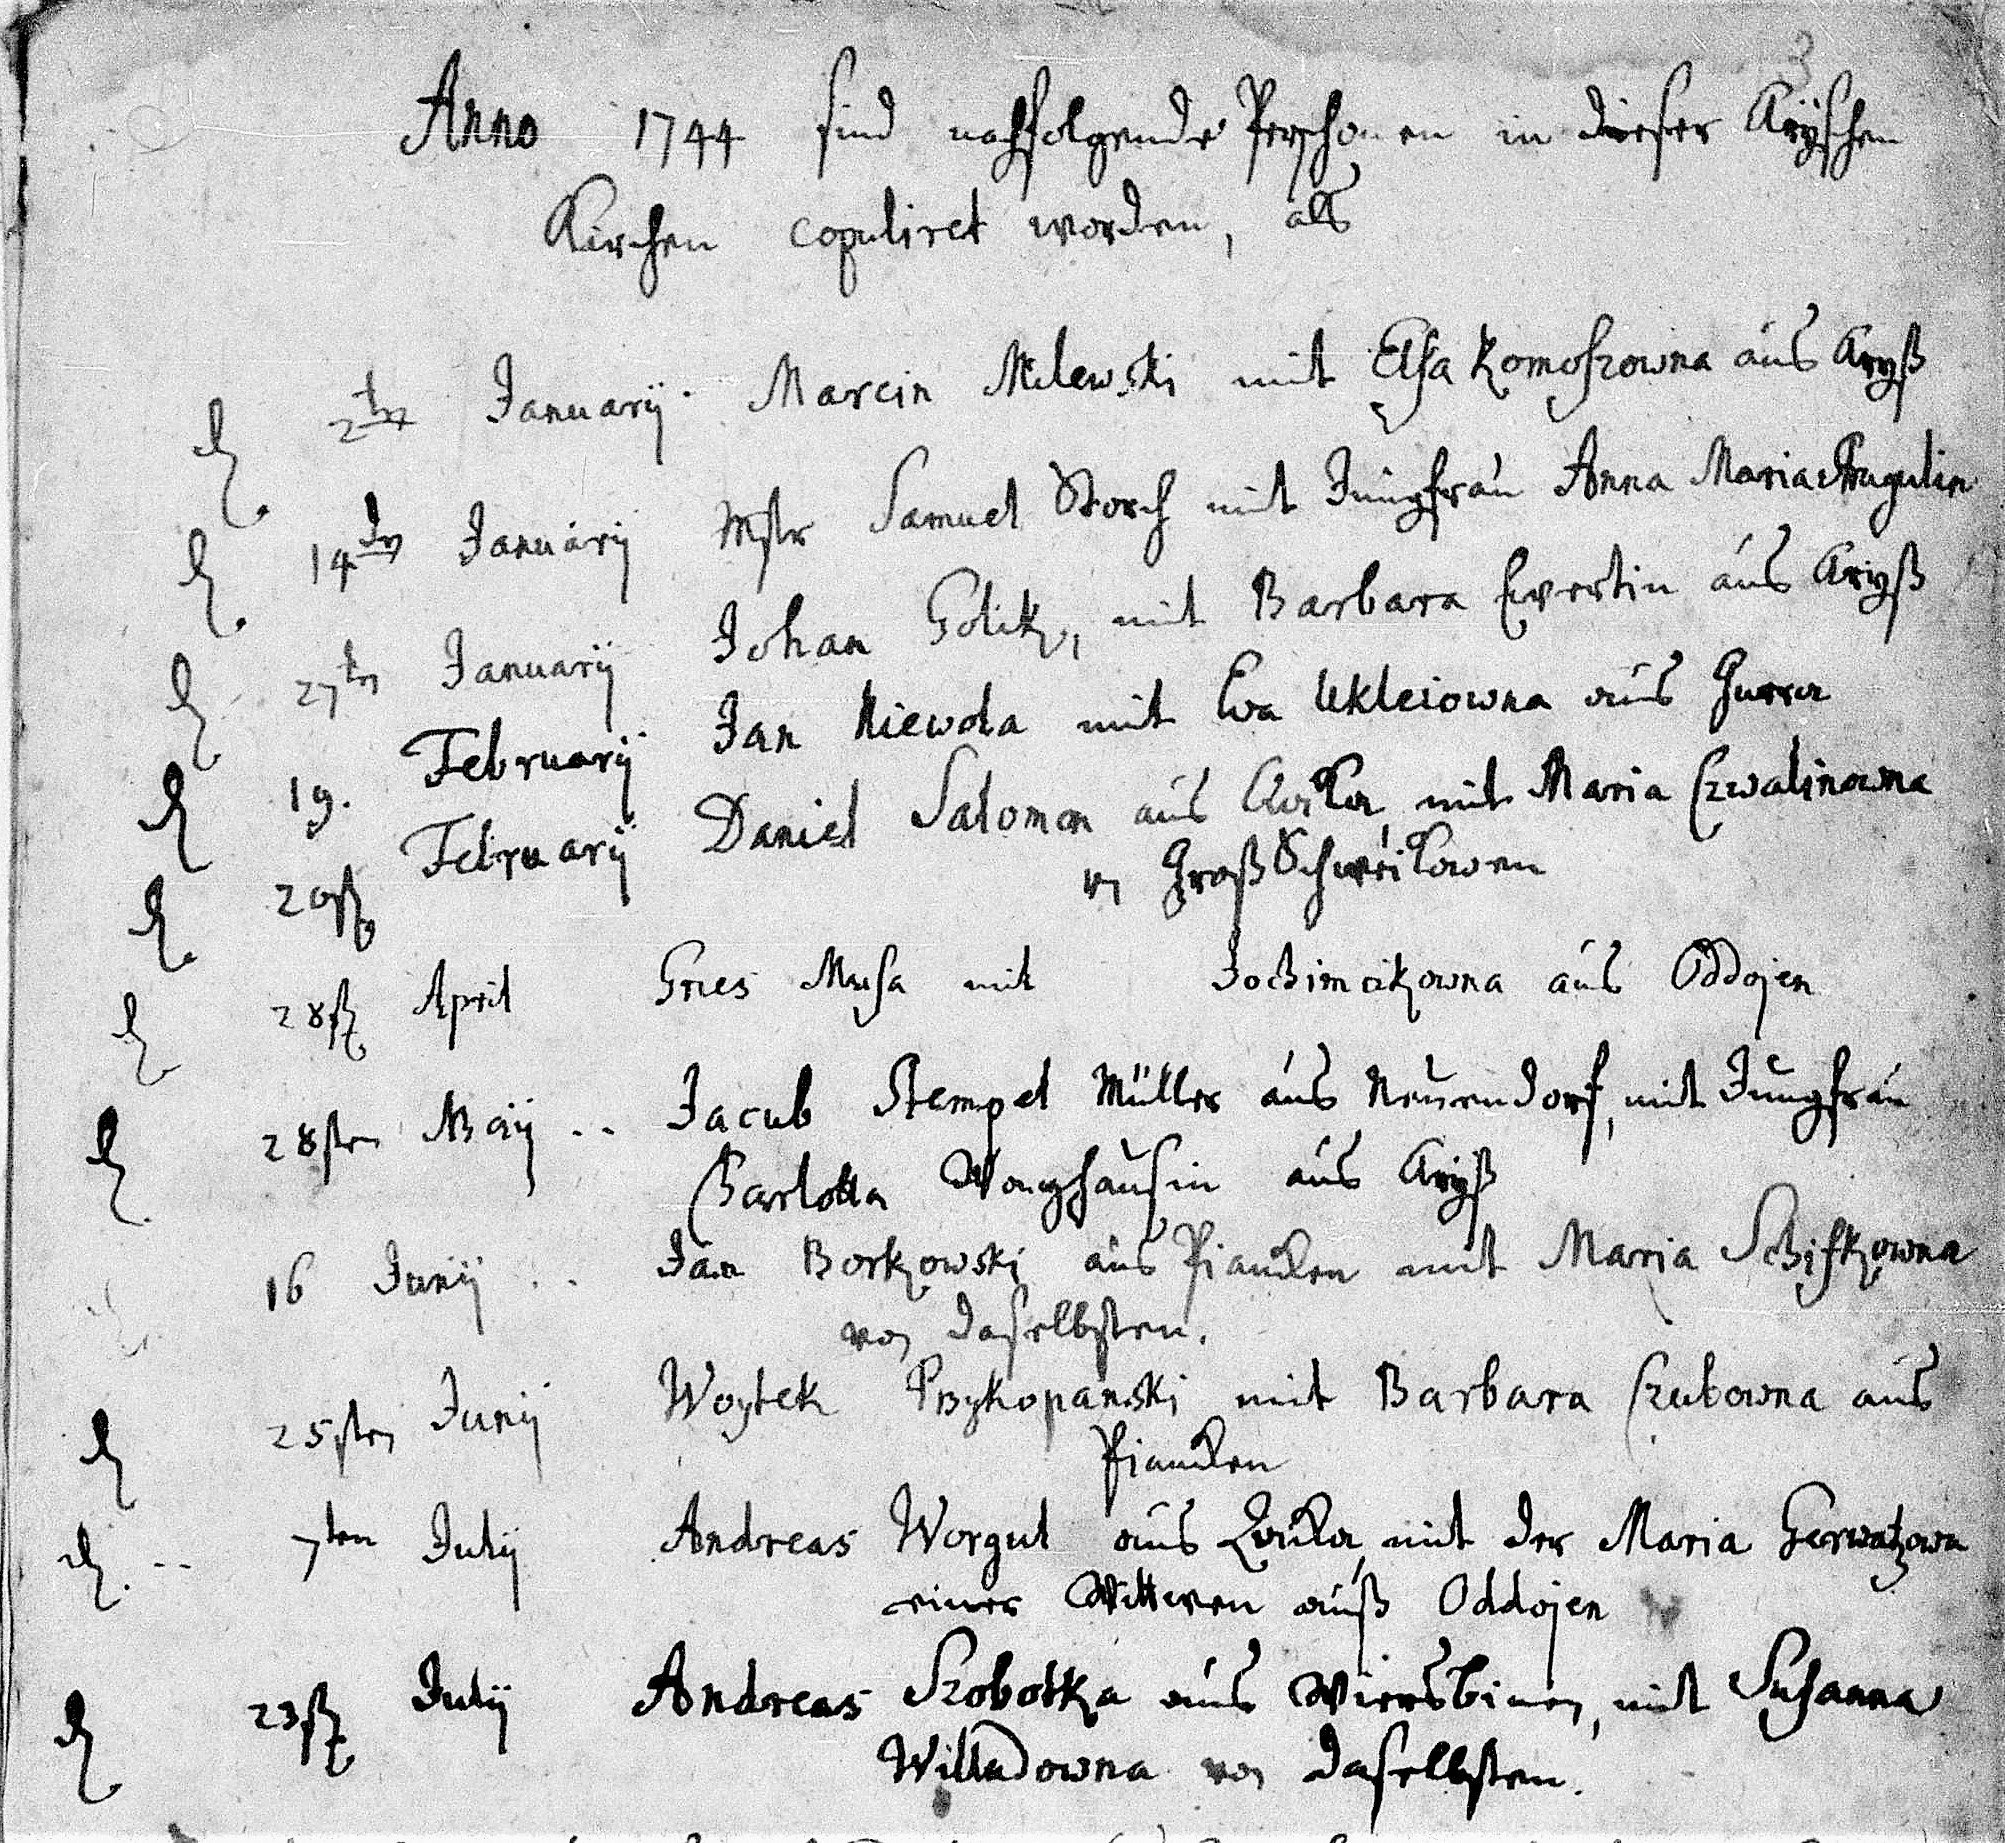 Anno 1744 sind nachfolgende Perschonen in dieser Aryschen
Kirchen copuliret worden, alß
d. 2ten Januarij. Marcin Milewski mit Elsa Komoszowna aus Aryß
d. 14den Januarij Mstr Samuel Storch mit Jungfrau Anna Maria
d. 27ten Januarij Johan Golik, mit Barbara Ewertin aus Aryß
d. 19. Februarij Jan Niewola mit Eva Ukleiowna aus Gurra
d. 20st Februarij Daniel Salomon aus mit Maria Czwalinowna
von Groß Schweikowen
d. 28st April Gries Musa mit Jochimcikowna aus Oddojen
d. 28sten Maij .. Jacub Stempel Müller aus Neuendorf, mit Jungfrau
Charlotta aus Aryß
16 Junij .. Jan Borkowski aus Piancken mit Maria Schifkowna
von daselbsten.
d. 25sten Junij Woytek Przykopanski mit Barbara Czubowna aus
Piancken
d. .. 7ten Julij Andreas Worgul aus mit der Maria Gerwatzowa
einer Wittwen auß Oddojen
d. 23st Julij Andreas Szobotka aus Wiersbinen, mit Susanna
Willadowna von daselbsten.